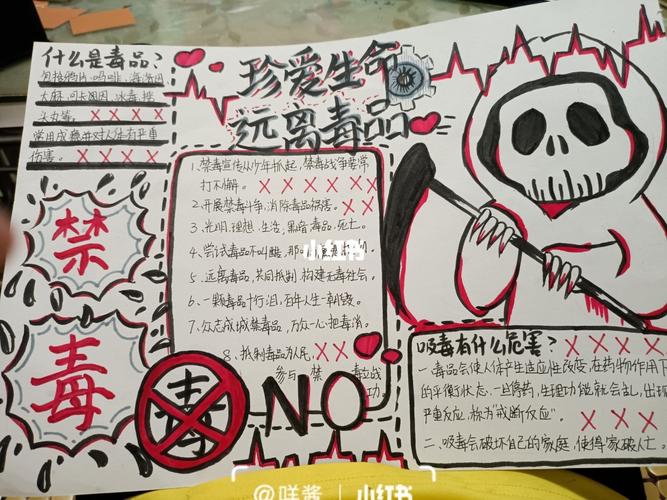 什么是毒品?
包括鸦片、吗啡、海洛因
大麻、可卡因、冰毒、摇
头丸等。××××
常用成瘾并对人体有严重
伤害。××××
珍爱生命
远离毒品
禁
毒
1、禁毒宣传从少年抓起，禁毒战争要常
打不懈。×××××
2、开展禁毒斗争，消除毒品祸害。××
3、光明·理想·生活；黑暗·毒品·死亡。
4、尝试毒品不叫酷，那
5、远离毒品，共同抵制，构建无毒社会。
6、一颗毒品十行泪，百年人生一朝毁。
7、众志成城禁毒品，万众一心把毒消。
8、抵制毒品为人民，××
参与 禁
毒
NO
吸毒有什么危害?××××
一、毒品会使人体产生适应性改变，在药物作用下
的平衡状态。一旦停药，生理功能就会紊乱，出现
严重反应，称为“戒断反应”。×××
二、吸毒会破坏自己的家庭，使得家破人亡。
小红书
@咩酱 | 小红书